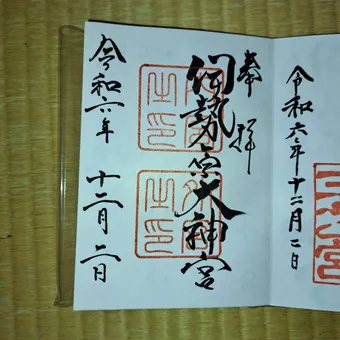 令和六年十二月二日
奉拝
伊勢原大神宮
令和六年
十二月二日